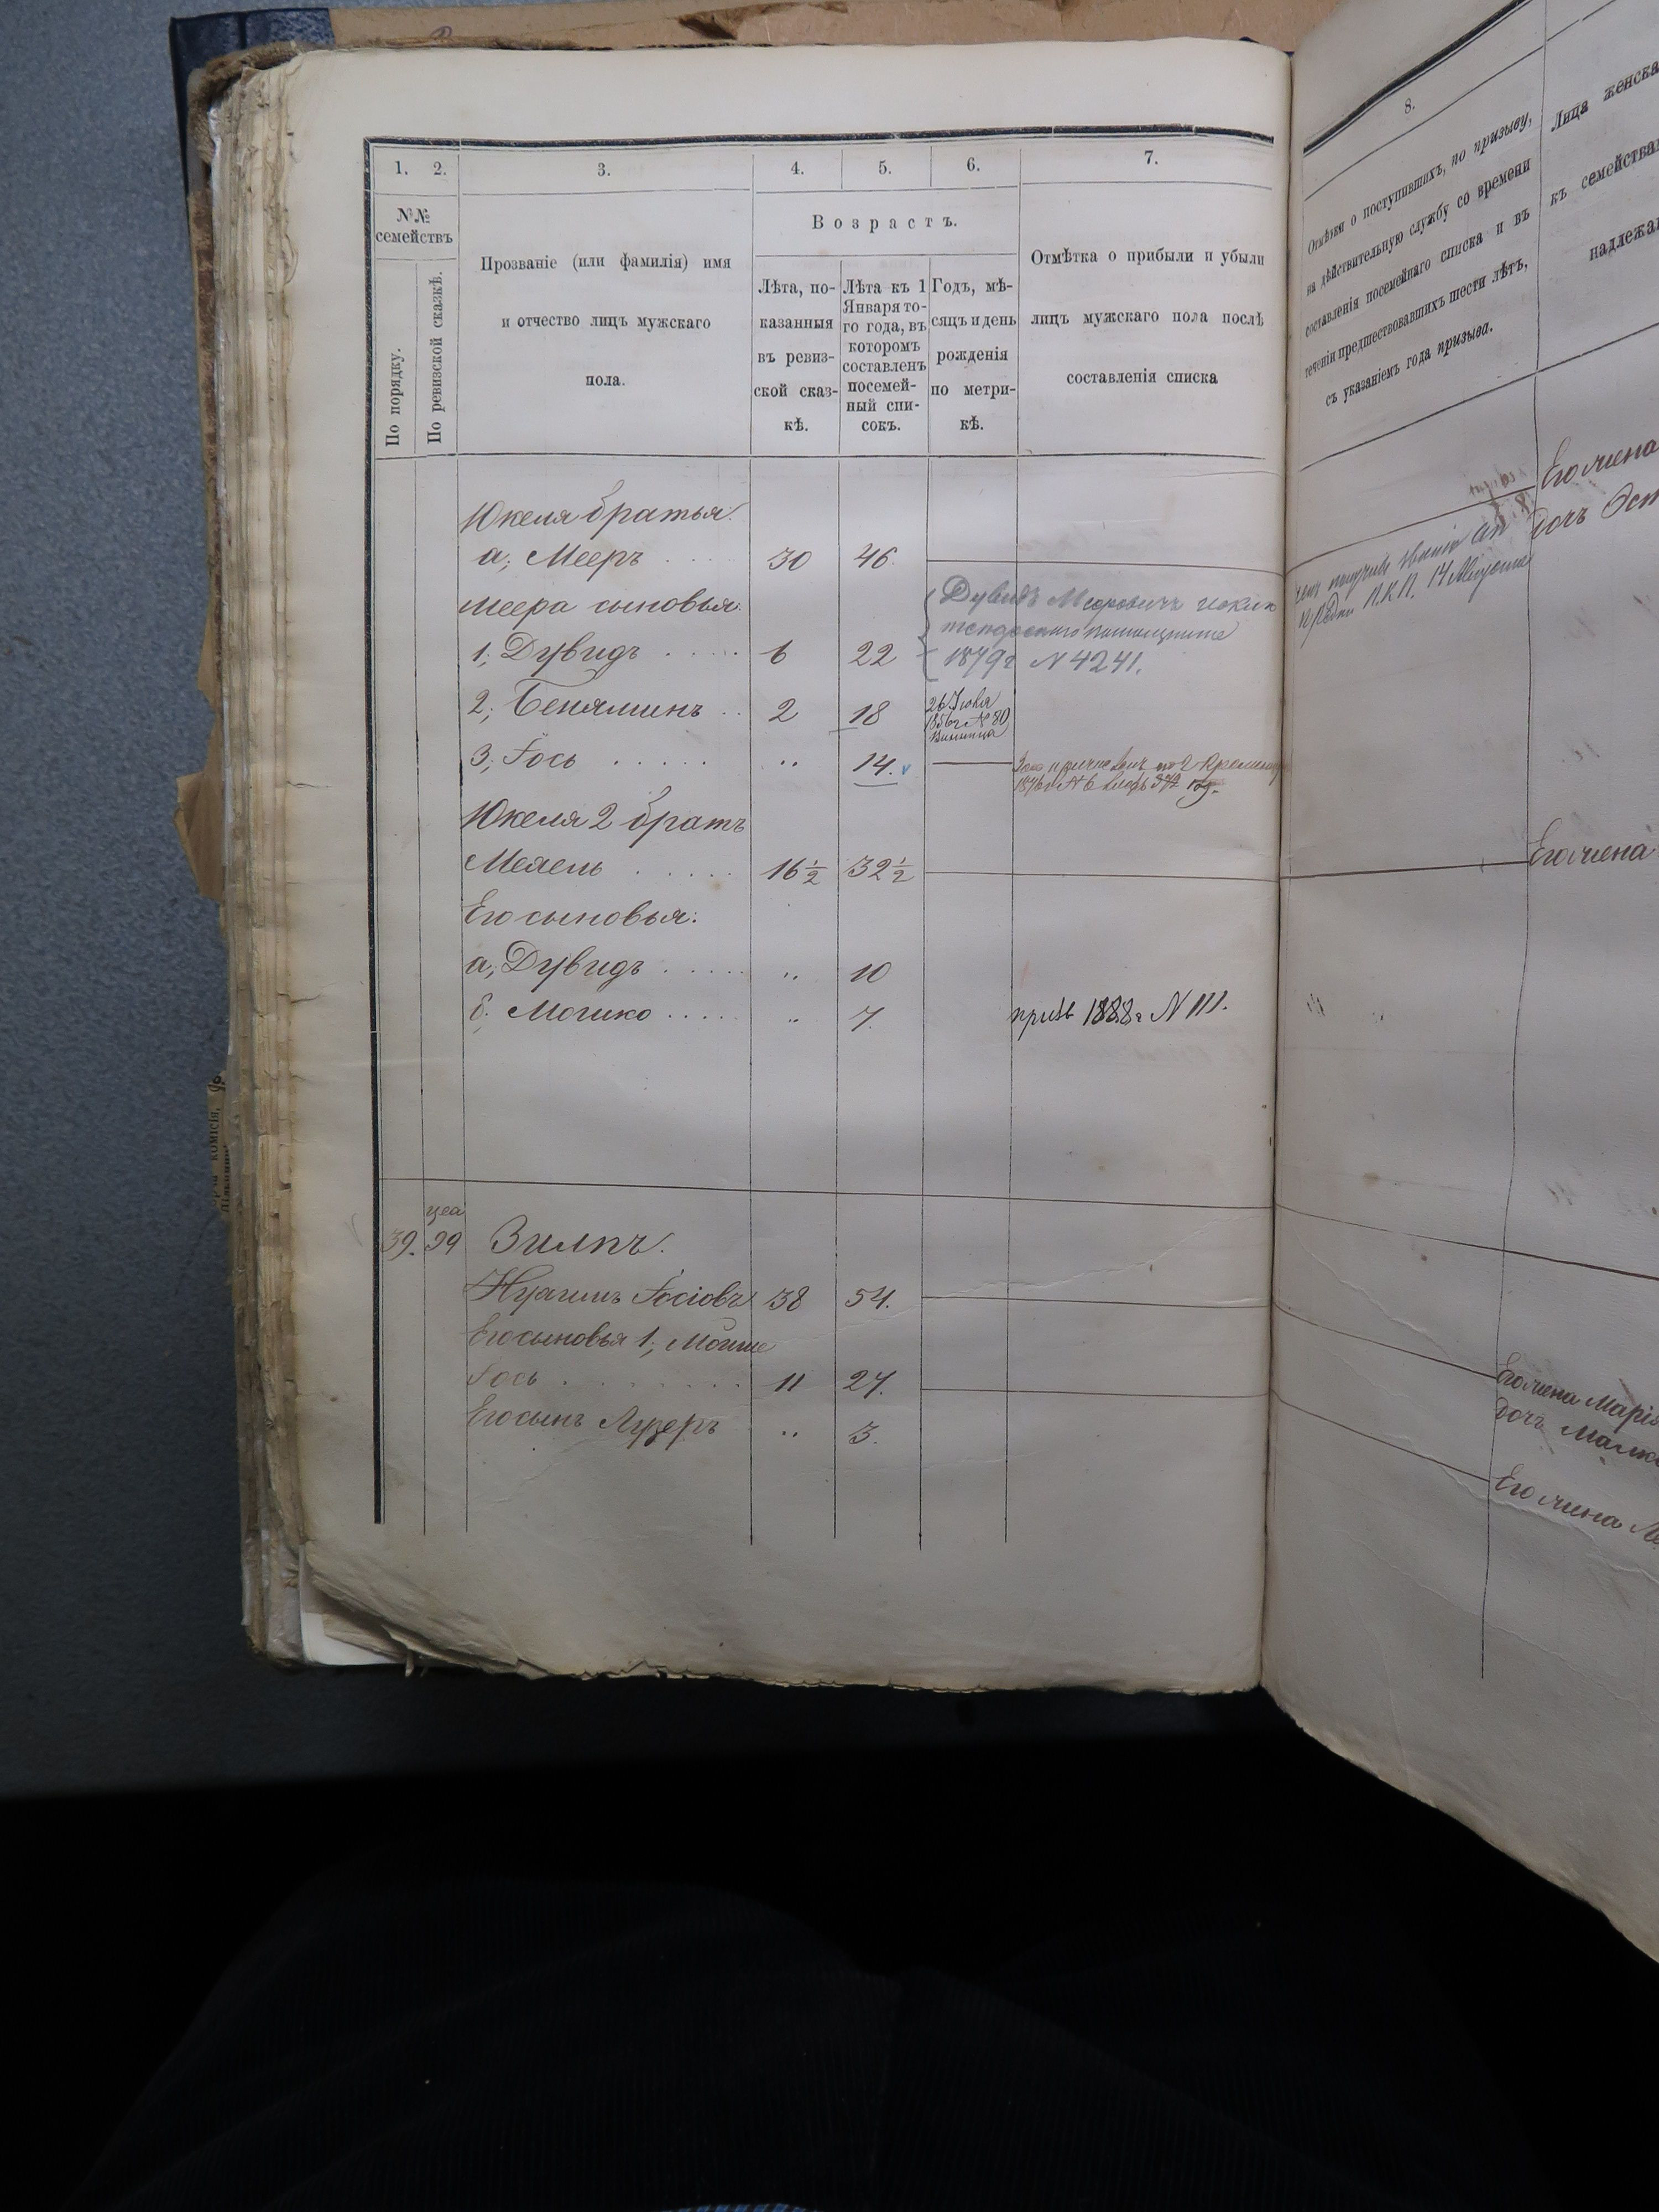 1. 2. 3. 4. 5. 6. 7.
№№ семействъ
По порядку.
По ревизской сказкѣ.
Прозваніе (или фамилія) имя
и отчество лицъ мужскаго
пола.
Возрастъ.
Лѣта, по-
казанныя
въ ревиз-
ской сказ-
кѣ.
Лѣта къ 1
Января то-
го года, въ
которомъ
составленъ
посемей-
ный спи-
сокъ.
Годъ, мѣ-
сяцъ и день
рожденія
по метри-
кѣ.
Отмѣтка о прибыли и убыли
лицъ мужскаго пола послѣ
составленія списка
Юкеля братья:
а; Мееръ 30 46
Меера сыновья:
1; Дувидъ 6 22
Дувидъ Меерович
1879г N 4241.
2; Беняминъ 2 18
26 Июня
№ 80
Винница
3; Іось " 14.
Юкеля 2 братъ
Мелель 16½ 32½
Его сыновья:
а; Дувидъ " 10
б; Мошко " 7.
1888г N 111.
39. 29 Зилпъ.
Нухимъ Іосіовъ 38 54.
Его сыновья 1; Мойше
Іось 11 27.
Его сынъ Лузеръ " 3.
8.
Отмѣтки о поступившихъ, по призыву,
на дѣйствительную службу со времени
составленія посемейнаго списка и въ
теченіи предшествовавшихъ шести лѣтъ,
съ указаніемъ года призыва.
Лица женска
къ семейства
надлежа
Его жена
дочь Эст
Его жена
Его жена Марія
дочь Малка
Его жена